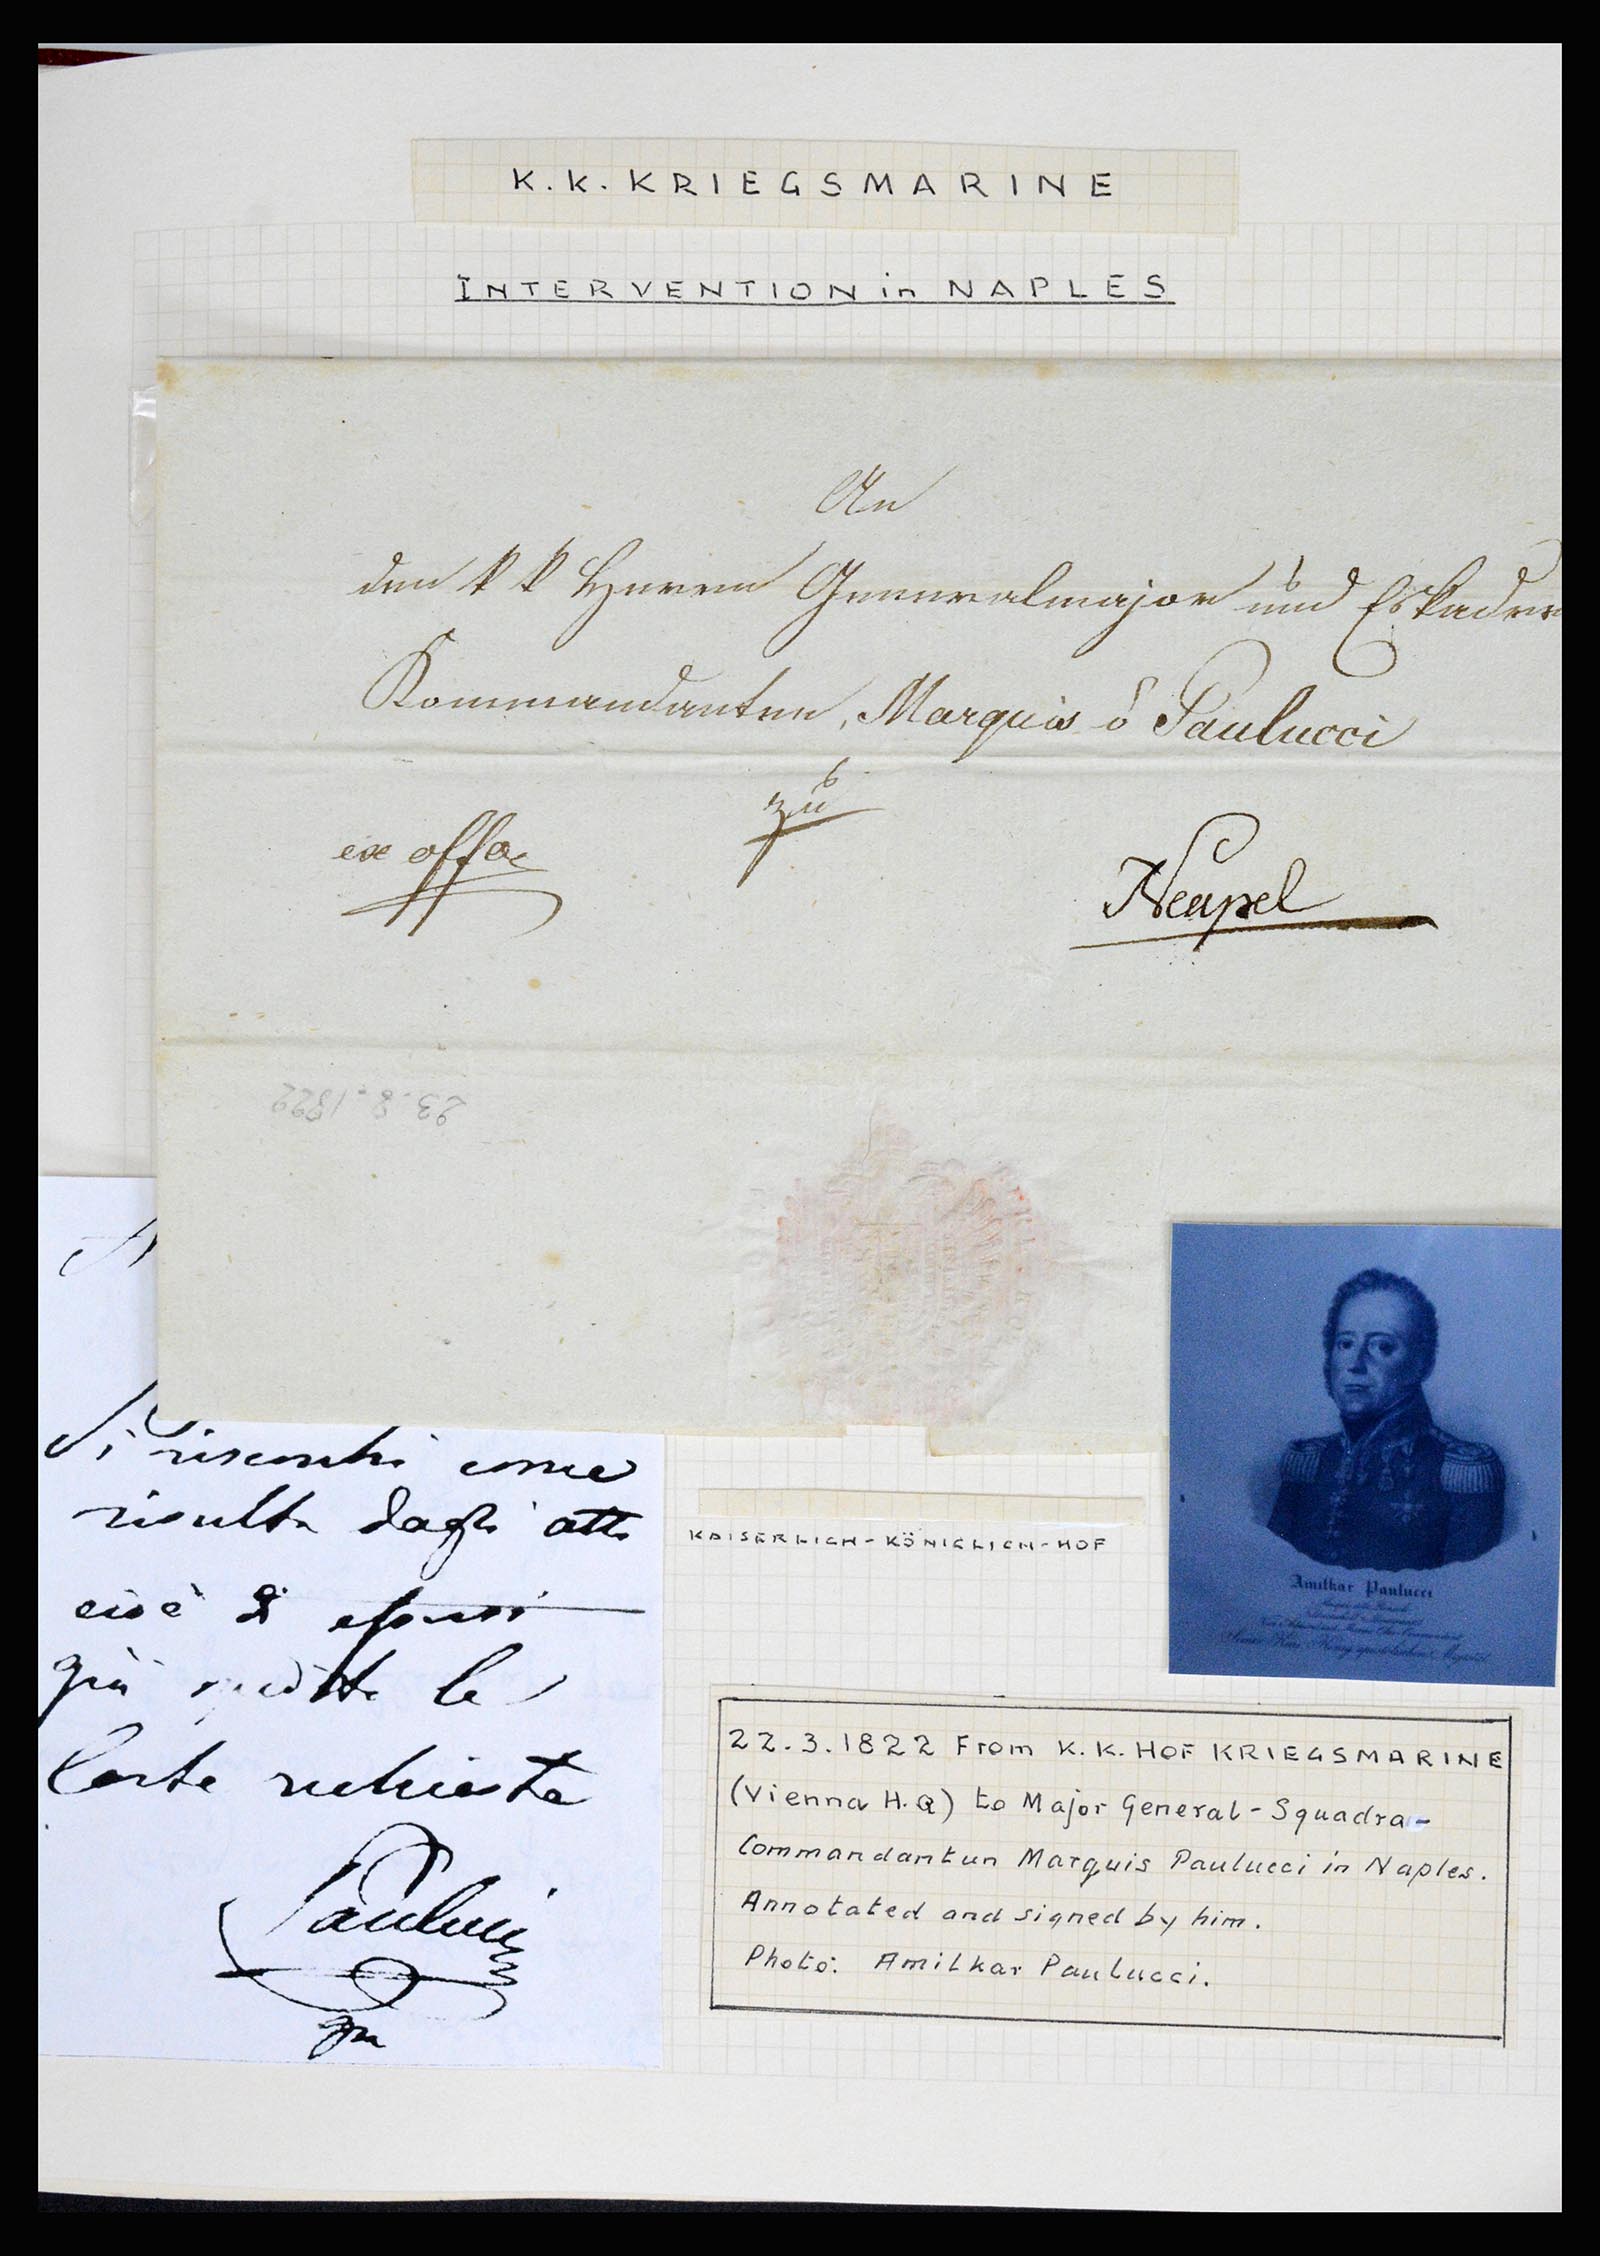 K.K. KRIEGSMARINE
INTERVENTION in NAPLES
An
den k k Herrn Generalmajor und Eskadre
Kommandanten, Marquis d Paulucci
zu
ex offo
Neapel
23.8.1822
Si riscontri come
risulta dagli atti
cioè di
già spedite le
Carte richieste
Paulucci
KAISERLICH-KÖNIGLICH-HOF
Amilkar Paulucci
22.3.1822 From K.K. HOF KRIEGSMARINE
(Vienna H.Q) to Major General-Squadra-
Commandantun Marquis Paulucci in Naples.
Annotated and signed by him.
Photo: Amilkar Paulucci.